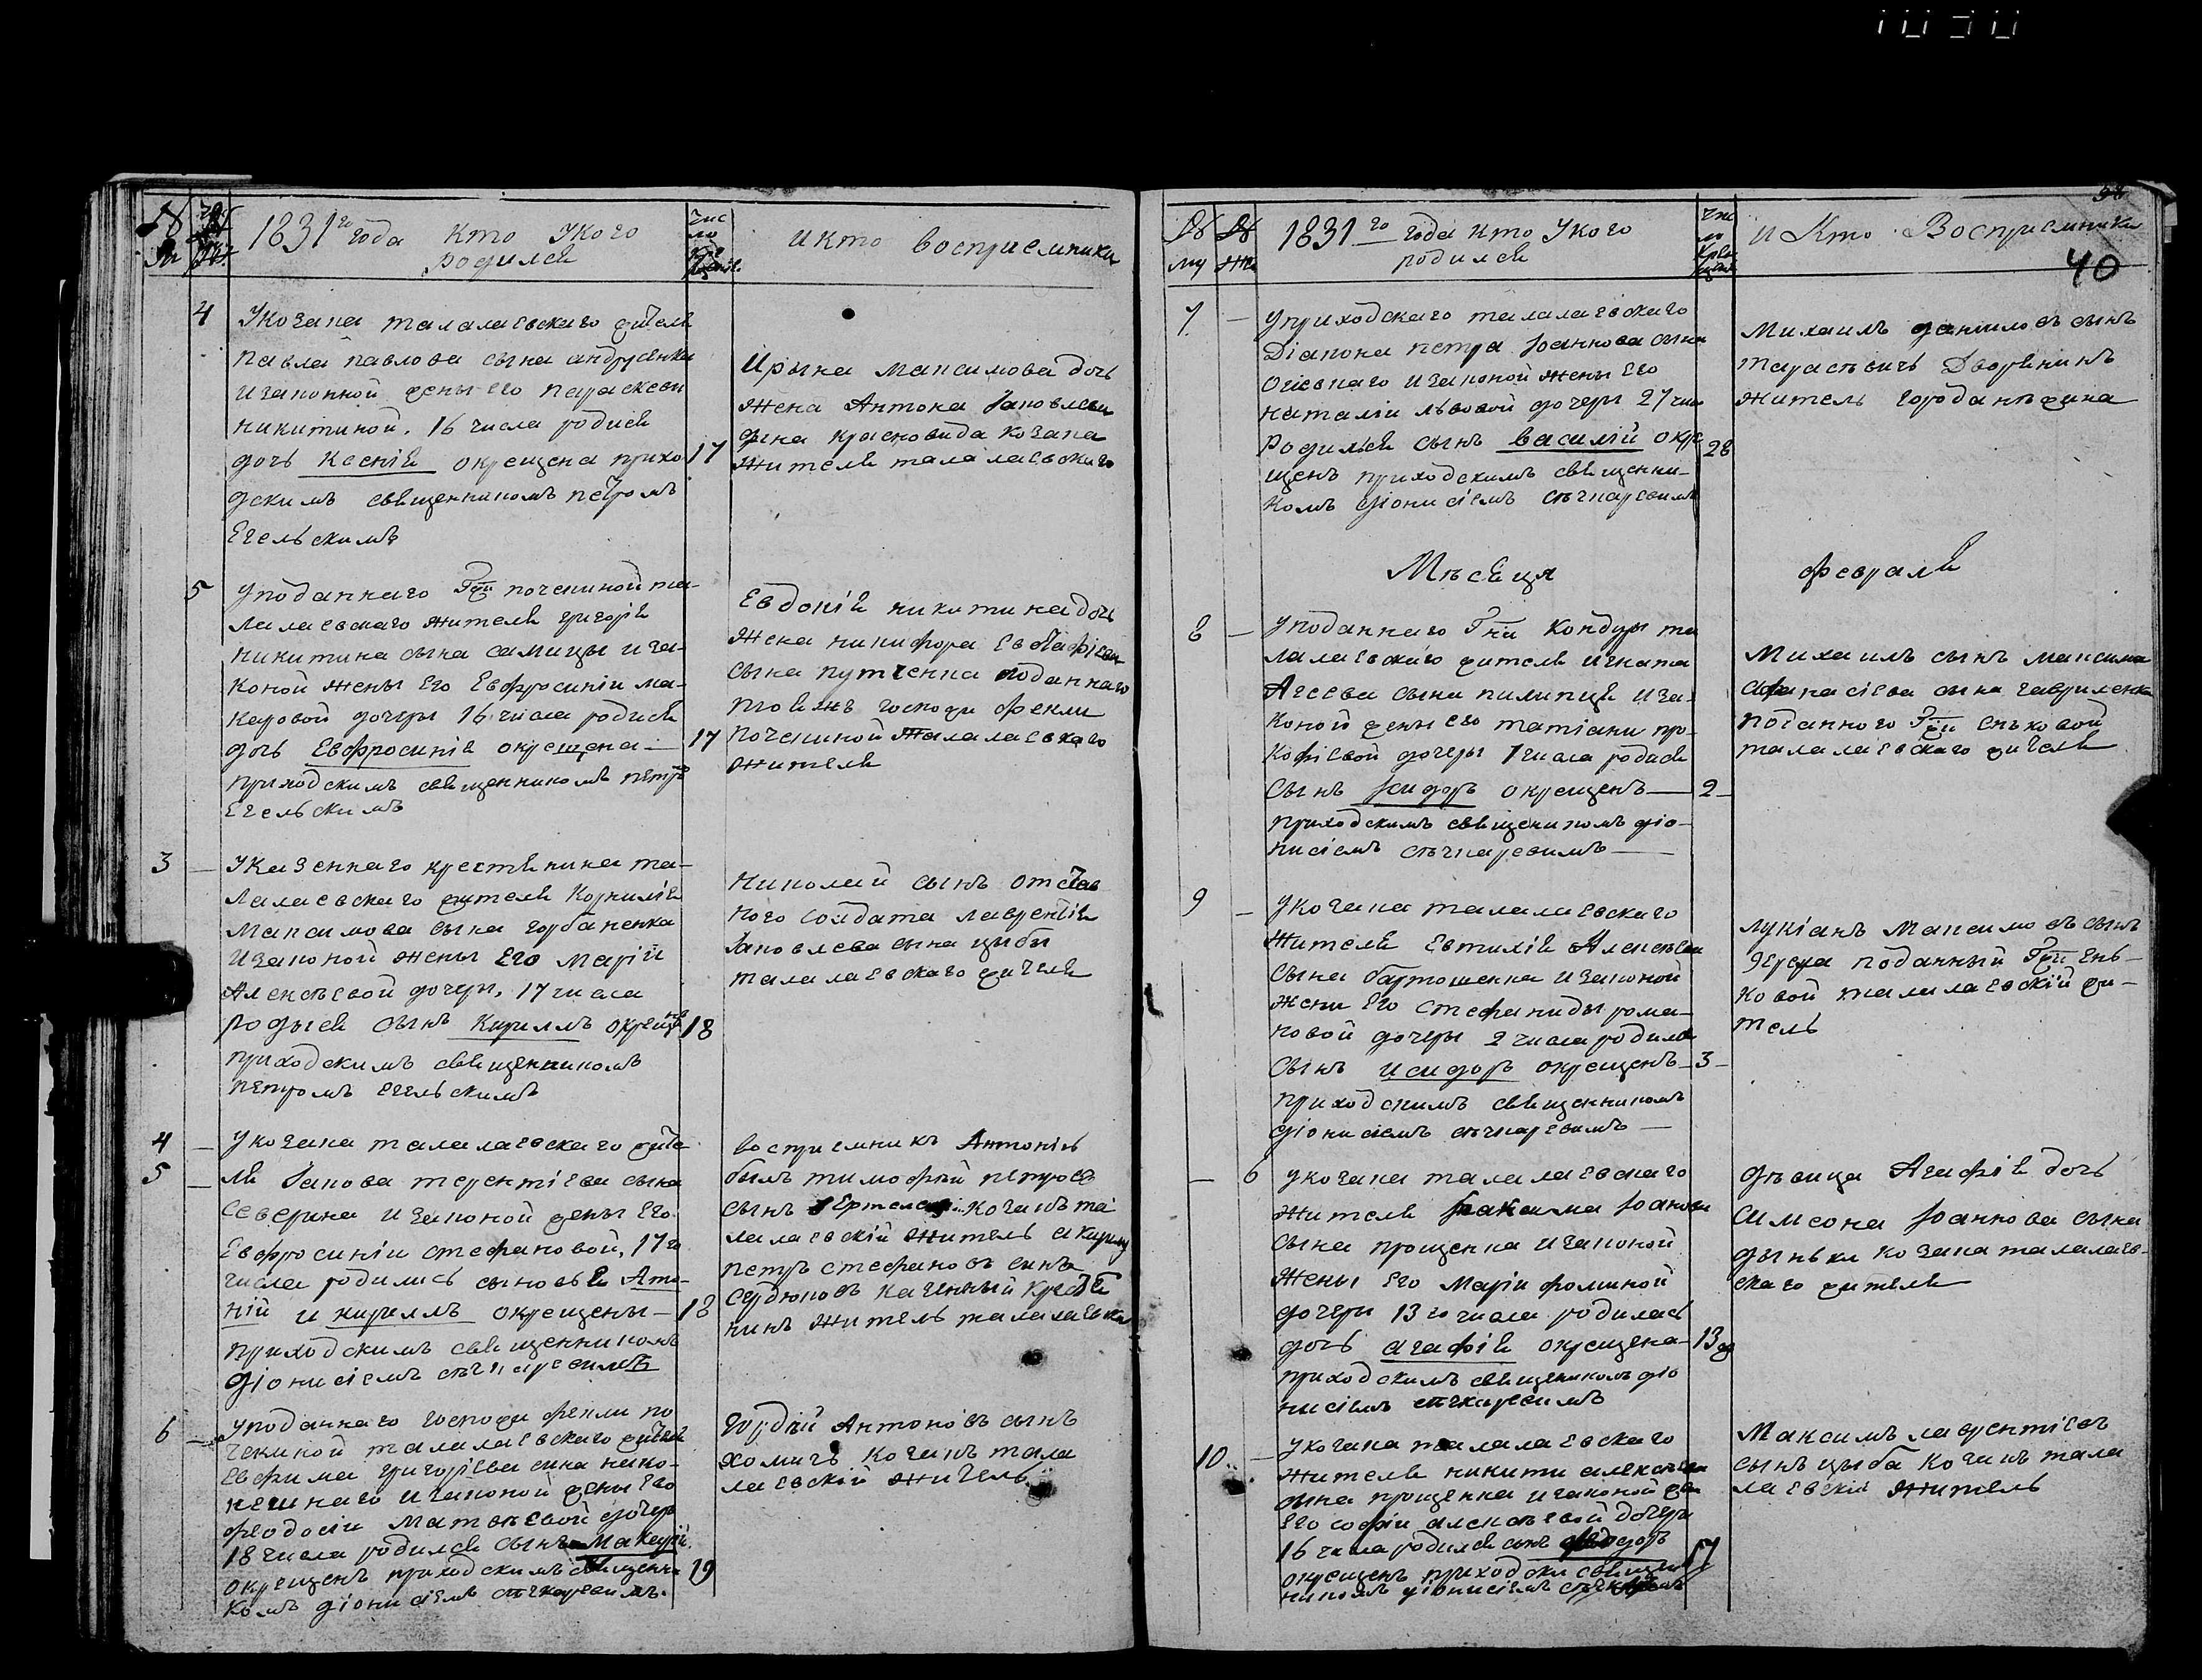 1831го года кто Укого
родился
число крещения
и кто восприемники
4
Укозака талалаевского жителя
Павла павлова сына андрусенка
изаконной жены его параскеви
никитиной, 16 числа родися
дочь Ксенія окрещена прихо
17
дскимъ священникомъ петромъ
Егельскимъ
Ирына Максимова дочь
жена Антона Яковлева
сына красновида козака
жителя талалаевского
5
Уподанного Гжи почекиной та-
лалаевскаго жителя григорія
никитина сына самицы иза-
коной жены Его Евфросиніи ма-
каровой дочеры 16 числа родися
дочь Евфросинія окрещена
17
приходскимъ священникомъ петро
Егельскимъ
Евдокія никитина дочь
жена никифора Евстафіева
сына путіенка подданнаго
госпожи феклы
почекиной талалаевкаго
жителя
3
Указеннаго крестянина та-
лалаевскаго жителя Корнилія
Максимова сына горбаненка
изаконой жены Его Маріи
Алексѣевой дочеры, 17 числа
родыся сынъ Кириллъ окрещенъ
18
приходскимъ священникомъ
петромъ егельскимъ
Николай сынъ отстав
ного солдата лаврентія
Яковлева сына цыбы
талалаевскаго жителя
4
5
Укозака талалаевскаго жите
ля Іакова терентіева сына
Северина изаконой жены Его
Евфросиніи стефановой, 17го
числа родились сыновья Анто-
ній и кириллъ окрещены
18
приходскимъ священникомъ
діонисіемъ сѣчкаревимъ
восприемникъ Антонія
былъ тимофѣй петровъ
сынъ козакъ та
лалаевскій житель а кирилу
петръ стефановъ синъ
Сердюковъ казенный крестя
нинъ житель талалаевки
6
Уподанного госпожи феклы по
чекиной талалаевскаго жителя
Евфима григоріева сина нако-
нешнаго изаконой жены Его
феодосіи Матвѣевой дочеры
18 числа родился сынъ Макарій
окрещенъ приходскимъ священи
19
комъ діонисіемъ сѣчкаревимъ.
Гордѣй Антоновъ сынъ
хомичъ козакъ тала
лаевскій житель
38
40
1831го года кто Укого
родился
число крещения
и Кто Восприемники
7
Уприходскаго талалаевскаго
Діакона петра Іоаннова сына
Огіевнаго изаконой жены Его
наталіи львовой дочеры 27 числ
родился сынъ василій окре
28
щенъ приходскимъ священни-
комъ діонисіемъ сѣчкаревимъ
Михаилъ даниловъ сынъ
тарасѣвичъ Дворянинъ
житель города нѣжина
Мѣсяця
февраля
8
Уподанного Гжи Кондуры та
лалаевскаго жителя игната
Агеева сына пилипця иза-
коной жены его татіани про-
кофіевой дочеры 1 числа родися
Сынъ Исидоръ окрещенъ
2
приходскимъ священикомъ діо-
нисіемъ сѣчкаревимъ
Михаилъ сынъ Максима
афанасіева сына гавриленка
поданного Гжи еньковой
талалаевскаго жителя
9
Укозака талалаевскаго
жителя Евтихія Алексѣева
сына бартошенка изаконой
жени Его Стефаниды рома-
новой дочеры 2 числа родился
Сынъ исидоръ окрещенъ
3
приходскимъ священникомъ
діонисіемъ сѣчкаревимъ
лукіанъ Максимовъ сынъ
поданный Гжи ень-
ковой талалаевскій жи-
тель
6
Укозака талалаевскаго
жителя Максима Іоанова
сына прощенка изаконой
жены Его Маріи фоминой
дочеры 13го числа родилась
дочь агафія окрещена
13
приходскимъ священикомъ діо
нисіемъ сѣчкаревимъ
дѣвица Агафія дочь
Симеона Іоаннова сына
дынька козака талалаев-
скаго жителя
10
Укозака талалаевскаго
жителя никити алексѣева
сына прощенка изаконой жен
Его софіи алексѣевой дочери
16 числа родился сынъ феодоръ
окрещенъ приходски свящ
17
никомъ діонисіемъ
Максимъ лаврентіевъ
сынъ цыба козакъ тала
лаевскій житель